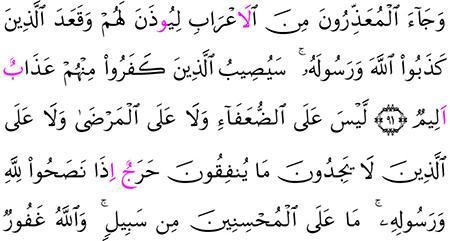 وَجَآءَ اَ۬لْمُعَذِّرُونَ مِنَ اَ۬لَاعْرَابِ لِيُوذَنَ لَهُمْ وَقَعَدَ اَ۬لذِينَ
كَذَبُواْ اُ۬للَّهَ وَرَسُولَهُۥۖ سَيُصِيبُ اُ۬لذِينَ كَفَرُواْ مِنْهُمْ عَذَابٌ
اَلِيمٌۖ ٩١ لَّيْسَ عَلَى اَ۬لضُّعَفَآءِ وَلَا عَلَى اَ۬لْمَرْضَىٰ وَلَا عَلَى
اَ۬لذِينَ لَا يَجِدُونَ مَا يُنفِقُونَ حَرَجٌ اِذَا نَصَحُواْ لِلهِ
وَرَسُولِهِۦۖ مَا عَلَى اَ۬لْمُحْسِنِينَ مِن سَبِيلٖۖ وَاللَّهُ غَفُورٞ